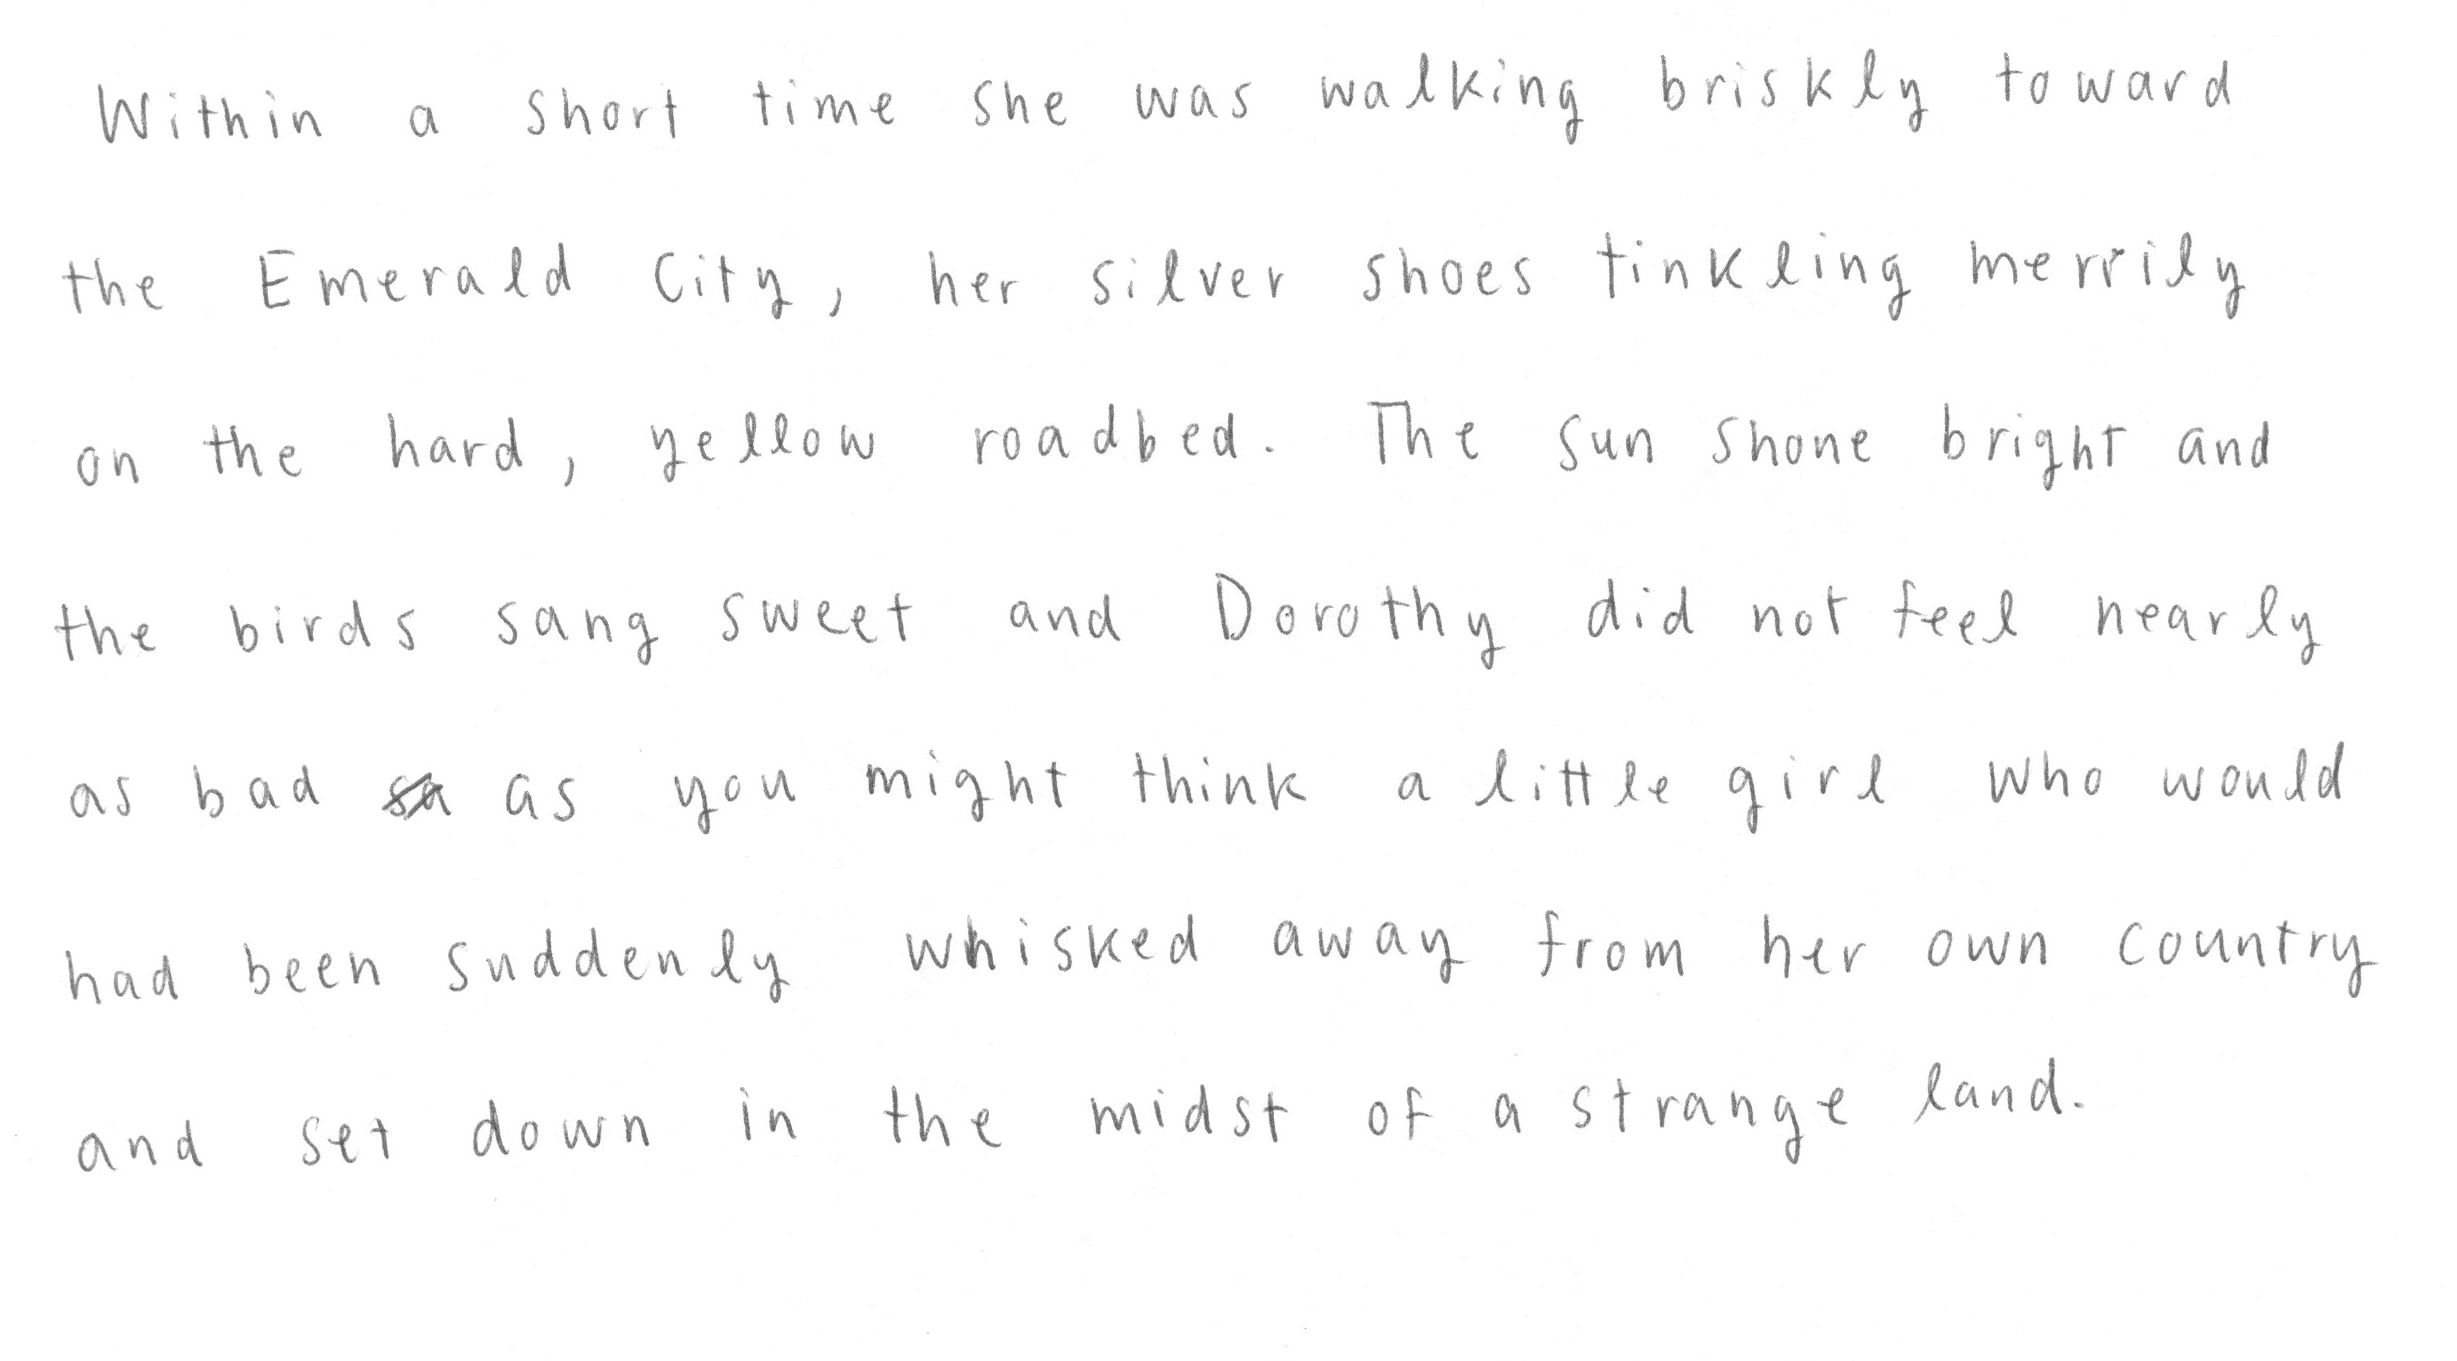 Within a short time she was walking briskly toward
the Emerald City, her silver shoes tinkling merrily
on the hard, yellow roadbed. The sun shone bright and
the birds sang sweet and Dorothy did not feel nearly
as bad as you might think a little girl who would
had been suddenly whisked away from her own country
and set down in the midst of a strange land.